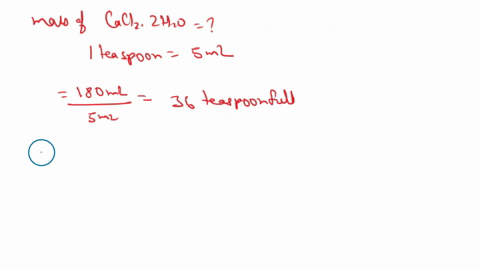 mass of CaCl2.2H2O = ?
1 teaspoon = 5 mL
= 180mL / 5mL = 36 teaspoonfull